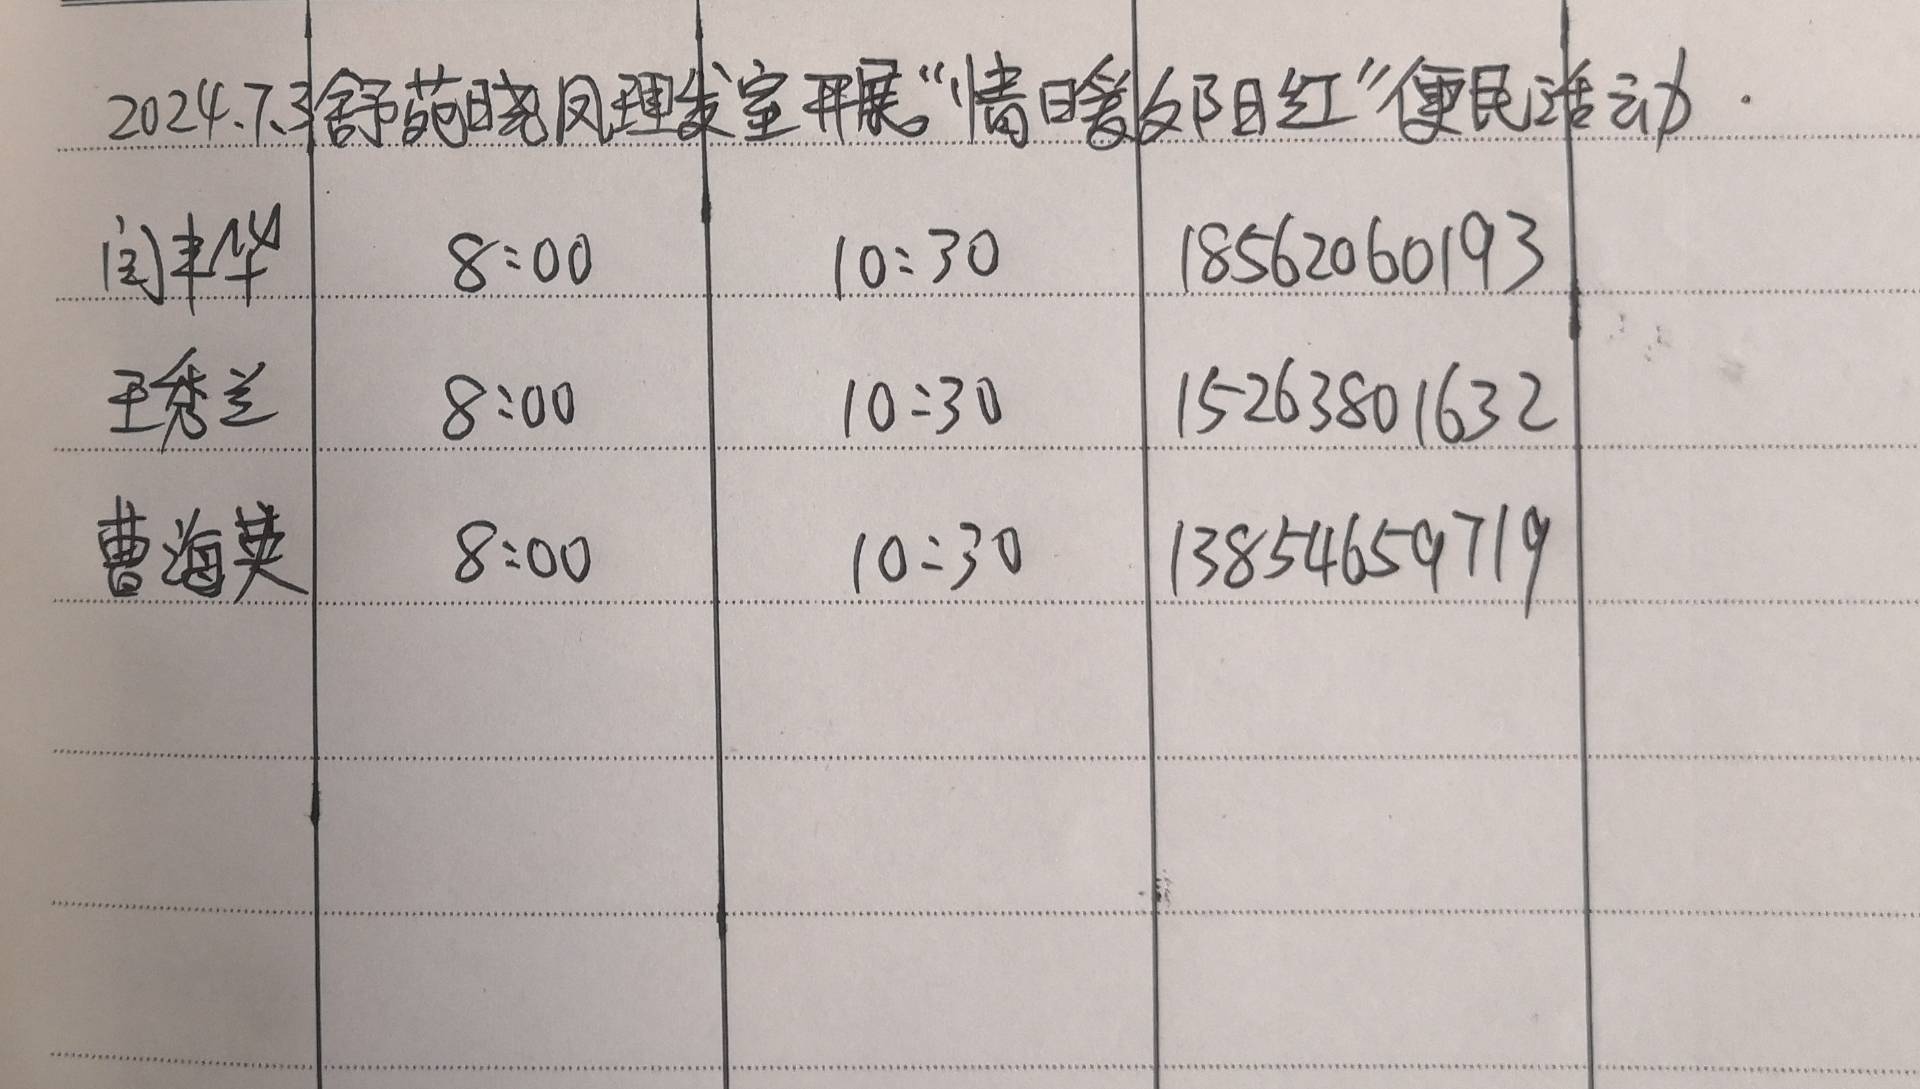 2024.7.3舒苑晓凤理发室开展“情暖夕阳红”便民活动.
闫丰华 8:00 10:30 18562060193
王秀兰 8:00 10:30 15263801632
曹海英 8:00 10:30 13854659719